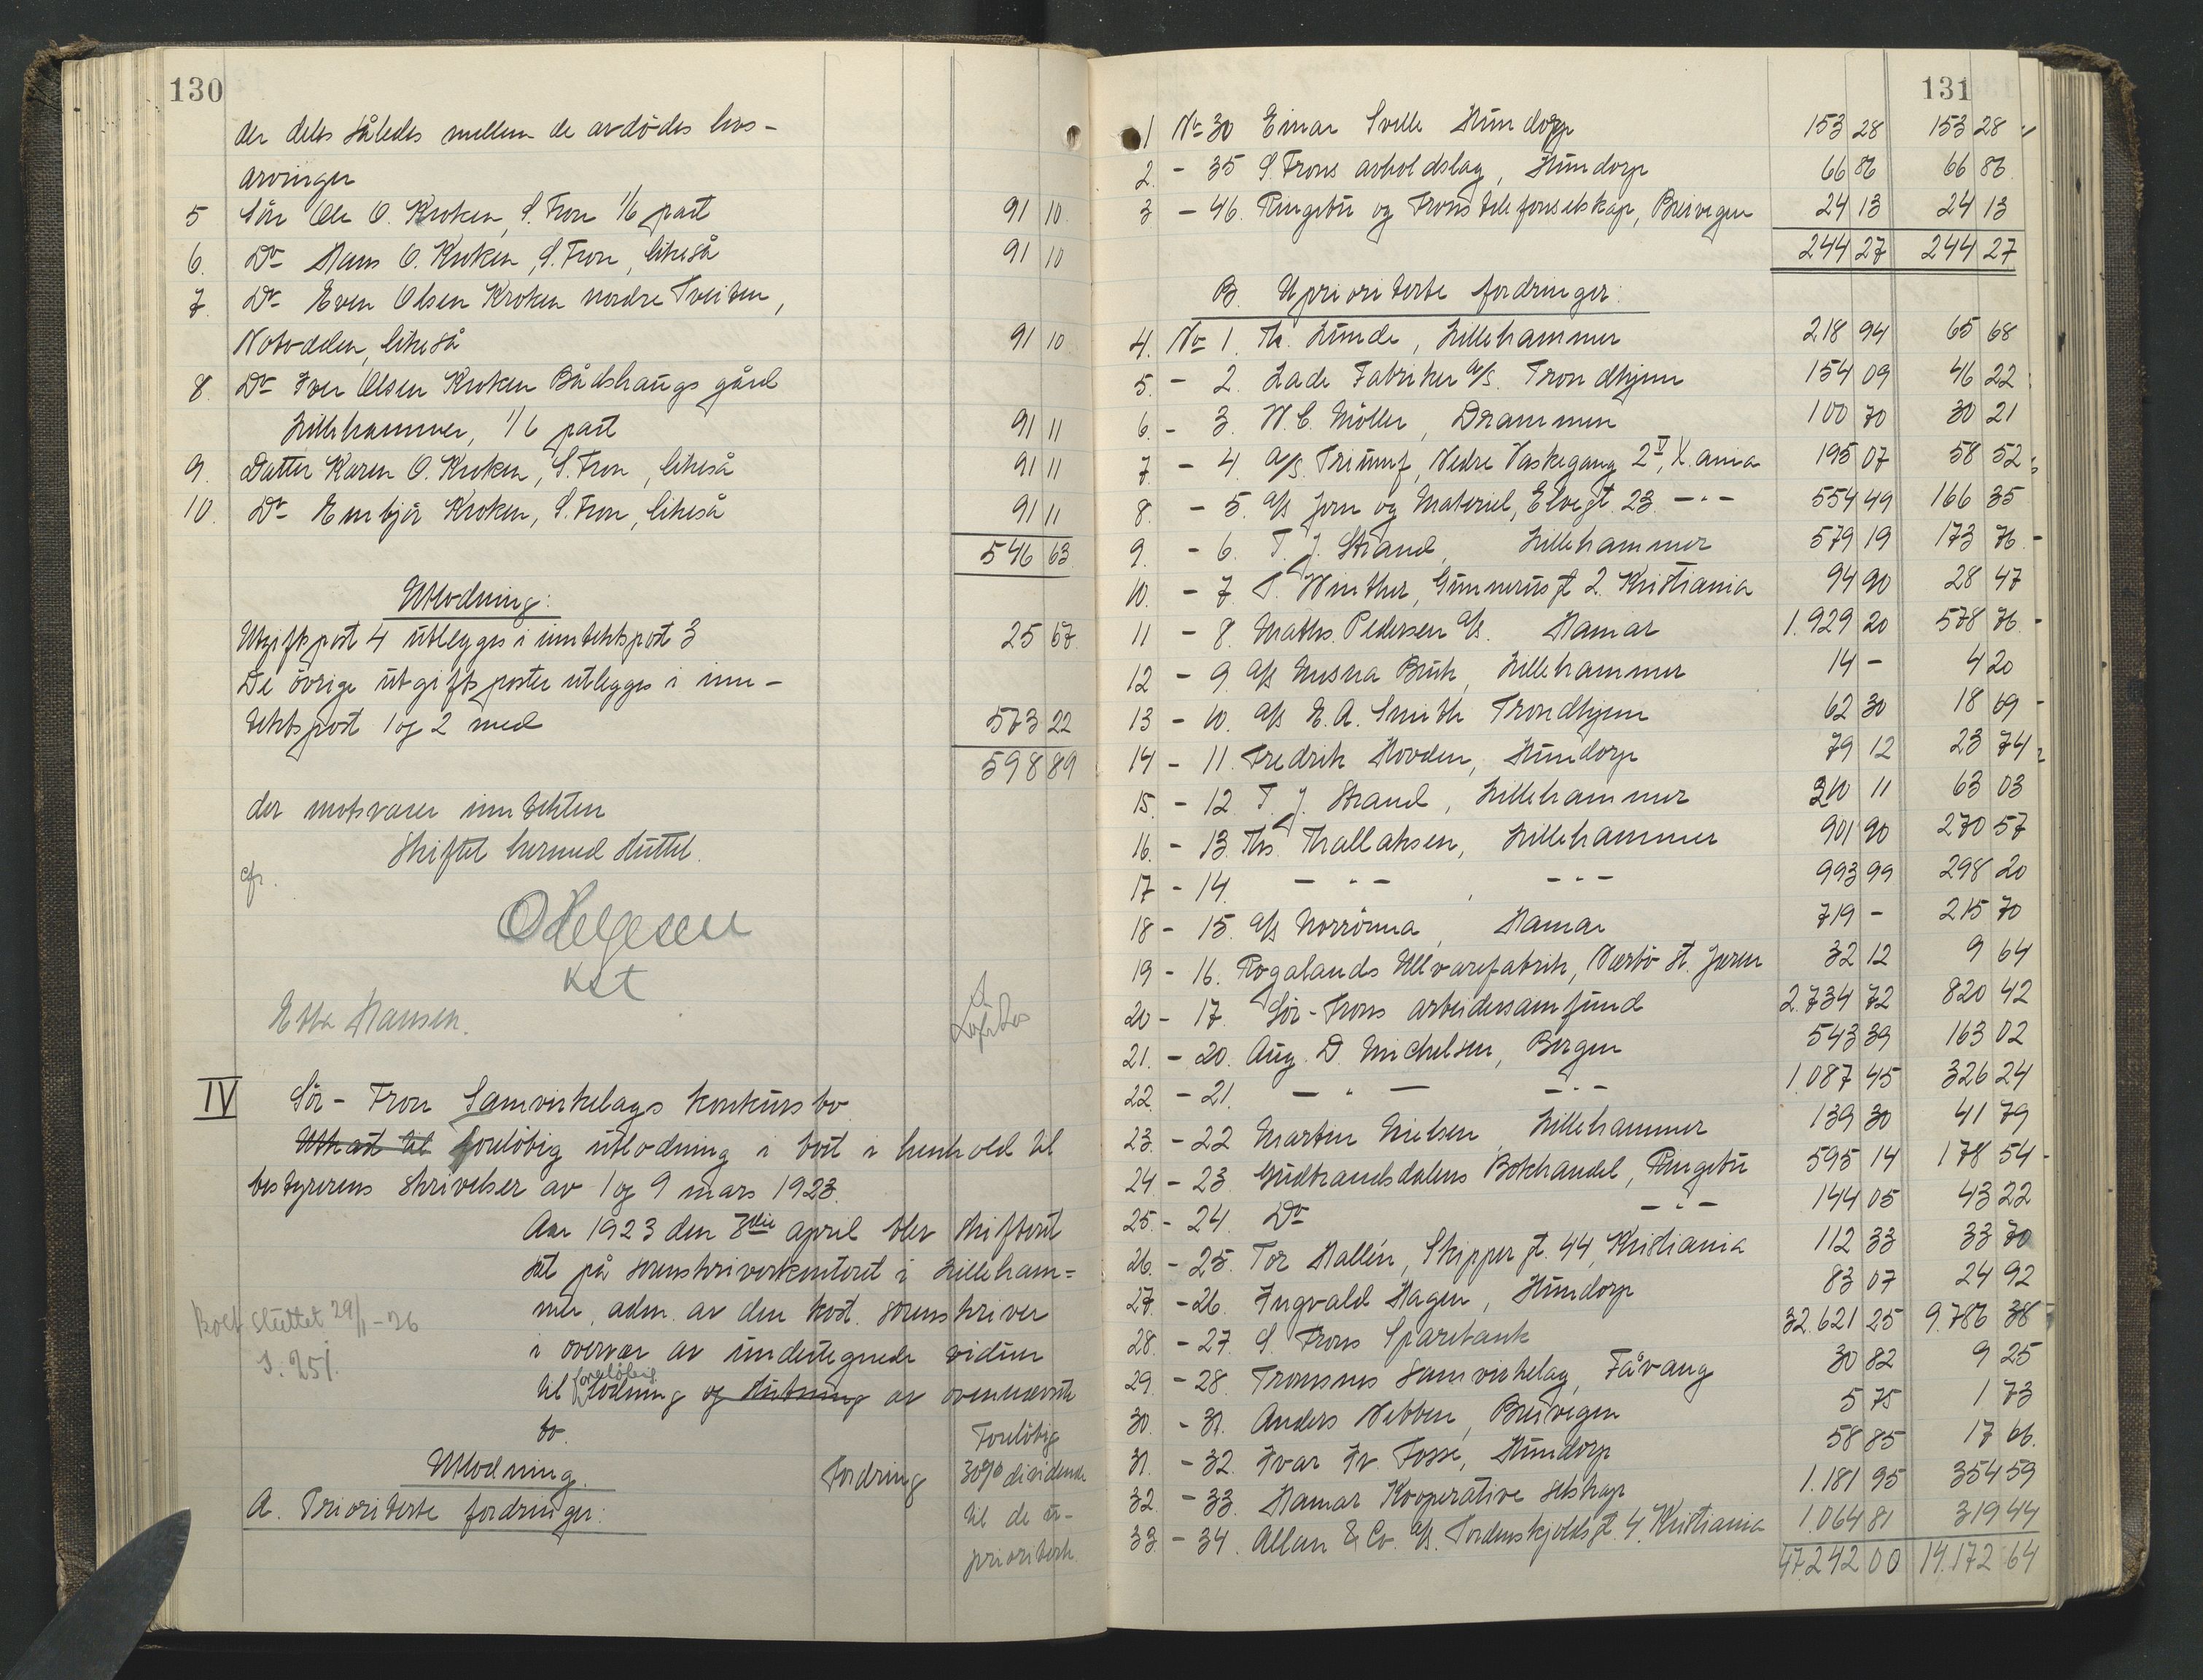 130
der deles således mellem de avdødes livs-
arvinger
5 Sön Ole O. Kroken, S. Fron 1/6 part 91 10
6. Do Hans O. Kroken, S. Fron, likeså 91 10
7. Do Even Olsen Kroken nordre Tveiten,
Notodden, likeså 91 10
8. Do Iver Olsen Kroken Bådshaugs gård
Lillehammer, 1/6 part 91 11
9. Datter Karen O. Kroken, S. Fron, likeså 91 11
10. Do Embjör Kroken, S. Fron, likeså 91 11
546 63
Utlodning:
Utgiftspost 4 utlegges i inntektspost 3 25 67
De övrige utgiftsposter utlegges i inn-
tektspost 1 og 2 med 573 22
598 89
der motsvarer inntekten
Skiftet hermed sluttet.
O Helgesen
kst
Hansen.
IV Sör-Fron Samvirkelags konkursbo
Utkast til foreløbig utlodning i boet i henhold til
bestyrerens skrivelser av 1 og 9 mars 1923.
Aar 1923 den 7die april blev skifteret
sat på sorenskriverkontoret i Lilleham=
mer, adm. av den kost. sorenskriver
i overvær av undertegnede vidner
til foreløbig lodning og slutning av ovennævnte
bo.
Boet sluttet 29/1-26
S. 251.
Utlodning.
Fordring
Foreløbig
30% dividende
til de u-
prioriterte.
A. Prioriterte fordringer:
131
1 No 30 Einar Sville Hundorp 153 28 153 28
2. - 35 S. Frons avholdslag, Hundorp 66 86 66 86
3 - 46. Ringebu og Frons telefonselskap, Breivegen 24 13 24 13
244 27 244 27
B. Uprioriterte fordringer:
4. No 1. Th. Lunde, Lillehammer 218 94 65 68
5. - 2. Lade Fabriker A/S. Trondhjem 154 09 46 22
6. - 3. W. C. Möller, Drammen 100 70 30 21
7 - 4. A/S. Triumf, Nedre Vaskegang 2 V, X.ania 195 07 58 52
8. - 5. A/S Jern og Materiel, Elvegt. 23. -"- 554 49 166 35
9. - 6. T. J. Strand, Lillehammer 579 19 173 76
10. - 7. T. Winther, Gunnerusgt 2. Kristiania 94 90 28 47
11 - 8. Maths. Pedersen A/S. Hamar 1.929 20 578 76
12 - 9. A/S Mesna Bruk, Lillehammer 14 - 4 20
13 - 10. A/S E. A. Smith Trondhjem 62 30 18 69
14 - 11. Fredrik Hovden, Hundorp 79 12 23 74
15 - 12 T. J. Strand, Lillehammer 210 11 63 03
16. - 13. Ths. Thallaksen, Lillehammer 901 90 270 57
17 - 14. - " - , - " - 993 99 298 20
18 - 15. A/S Norröna, Hamar 719 - 215 70
19 - 16. Rogalands Ullvarefabrik, Nærbö st. Jæren 32 12 9 64
20 - 17. Sör-Frons arbeidersamfund 2.734 72 820 42
21. - 20. Aug. D. Michelsen, Bergen 543 39 163 02
22. - 21. - " - - " - 1.087 45 326 24
23. - 22 Martin Nielsen, Lillehammer 139 30 41 79
24 - 23 Gudbrandsdalens Bokhandel, Ringebu 595 14 178 54
25. - 24. Do - " - 144 05 43 22
26. - 25. Tor Hallén, Skippergt. 44, Kristiania 112 33 33 70
27. - 26. Ingvald Hagen, Hundorp 83 07 24 92
28. - 27. S. Frons Sparebank 32.621 25 9.786 38
29. - 28. Tromsnes Samvirkelag, Fåvang 30 82 9 25
30. - 31. Anders Vebben, Breivegen 5 75 1 73
31. - 32. Ivar Iv. Fosse, Hundorp 58 85 17 66.
32. - 33. Hamar Kooperative Selskap 1.181 95 354 59
33. - 34. Allan & Co. A/S. Tordenskjoldsgt. 4. Kristiania 1.064 81 319 44
47.242 00 14.172 64